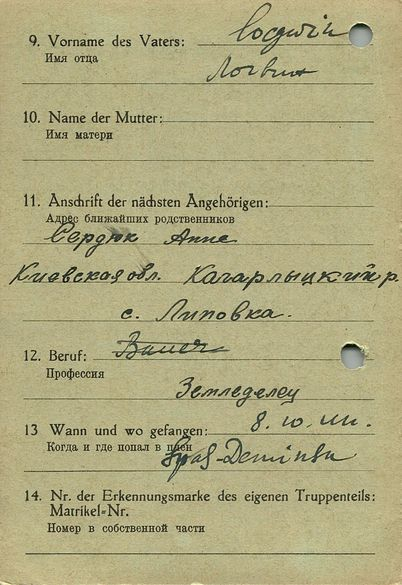 9. Vorname des Vaters: Logwin
Имя отца
Логвин
10. Name der Mutter:
Имя матери
11. Anschrift der nächsten Angehörigen:
Адрес ближайших родственников
Сердюк Анне
Киевская обл. Кагарлыцкий р.
с. Липовка.
12. Beruf: Bauer
Профессия
Земледелец
13 Wann und wo gefangen: 8.10.
Когда и где попал в плен
14. Nr. der Erkennungsmarke des eigenen Truppenteils:
Matrikel-Nr.
Номер в собственной части